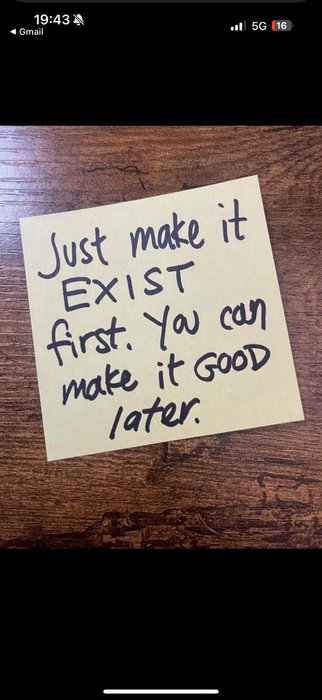 19:43
5G 16
◀ Gmail
Just make it
EXIST
first. You can
make it GOOD
later.